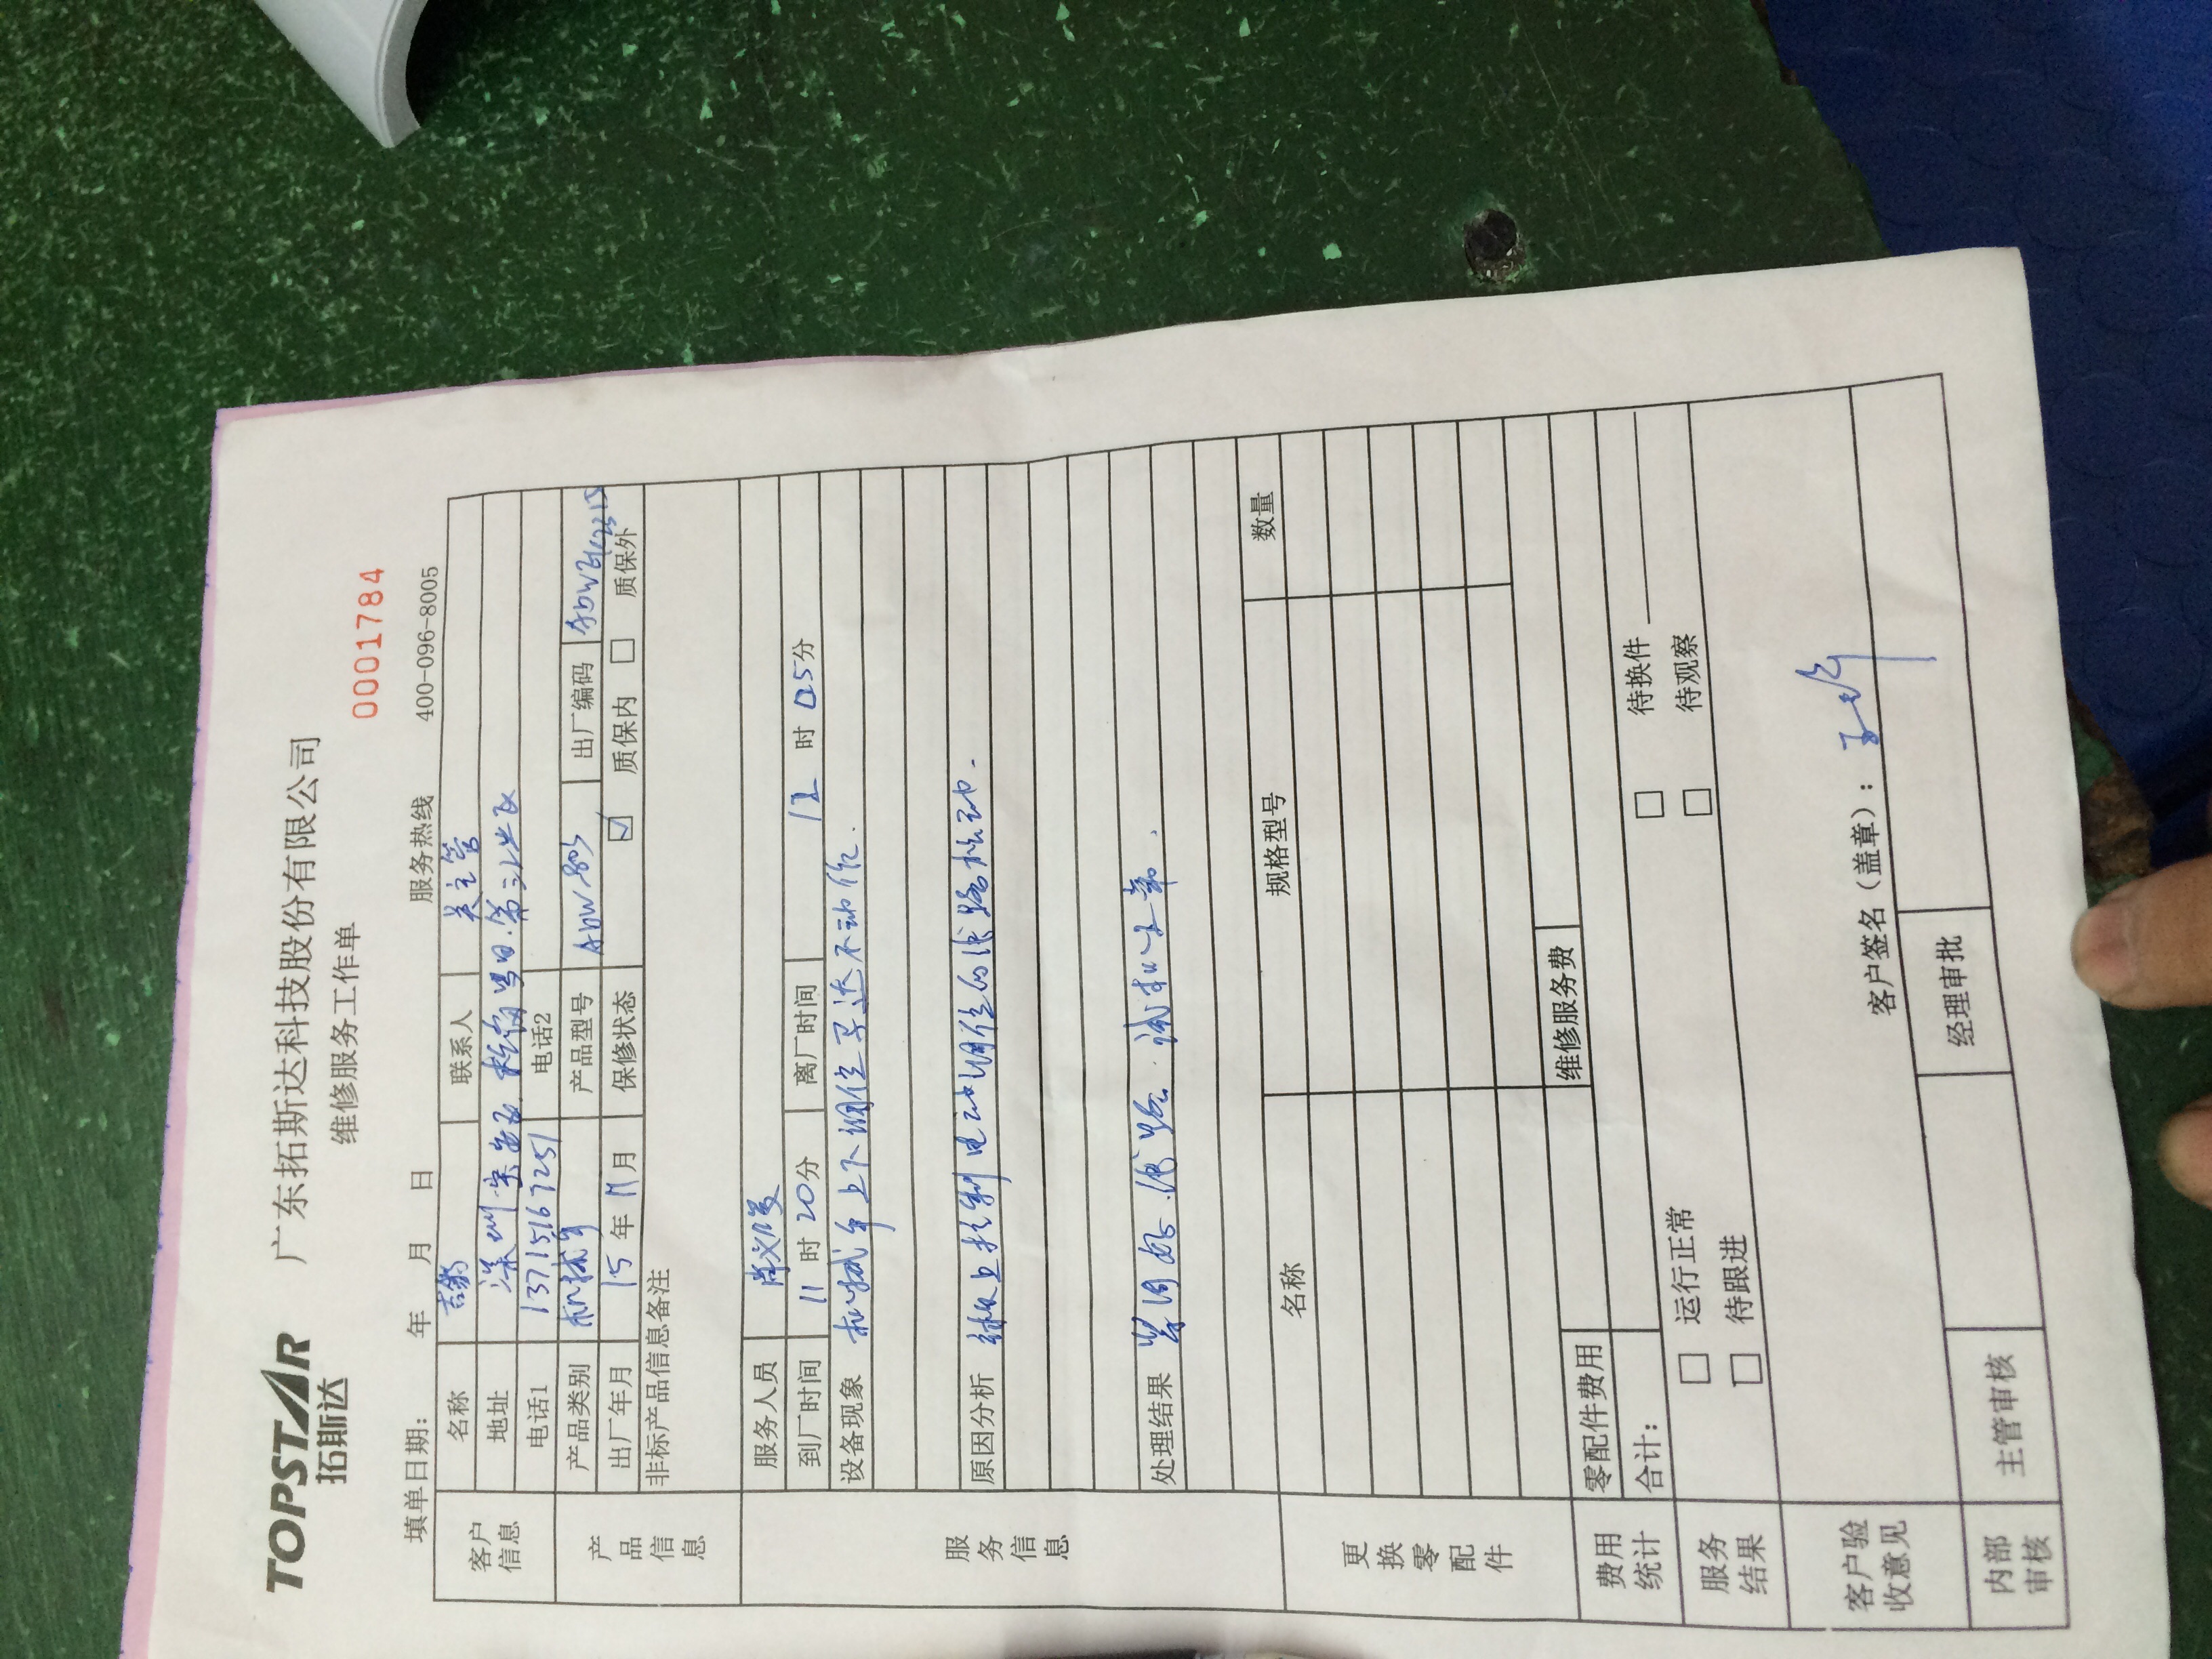 TOPSTAR 广东拓斯达科技股份有限公司
拓斯达 维修服务工作单
0001784
填单日期： 年 月 日 服务热线 400-096-8005
客户信息
名称 联系人 关主管
地址 深圳宝安 第三工业区
电话1 13715167251 电话2
产品信息
产品类别 机械手 产品型号 出厂编码
出厂年月 15年11月 保修状态 ☑ 质保内 □ 质保外
非标产品信息备注
服务信息
服务人员
到厂时间 11时20分 离厂时间 12时05分
设备现象 机械手上下调位马达不动作.
原因分析 线板上控制电动调位的线路松动.
处理结果 线路.试机正常.
更换零配件
名称 规格型号 数量
费用统计
零配件费用 维修服务费
合计：
服务结果
□ 运行正常 □ 待换件
□ 待跟进 □ 待观察
客户验收意见
客户签名（盖章）：
内部审核
主管审核 经理审批